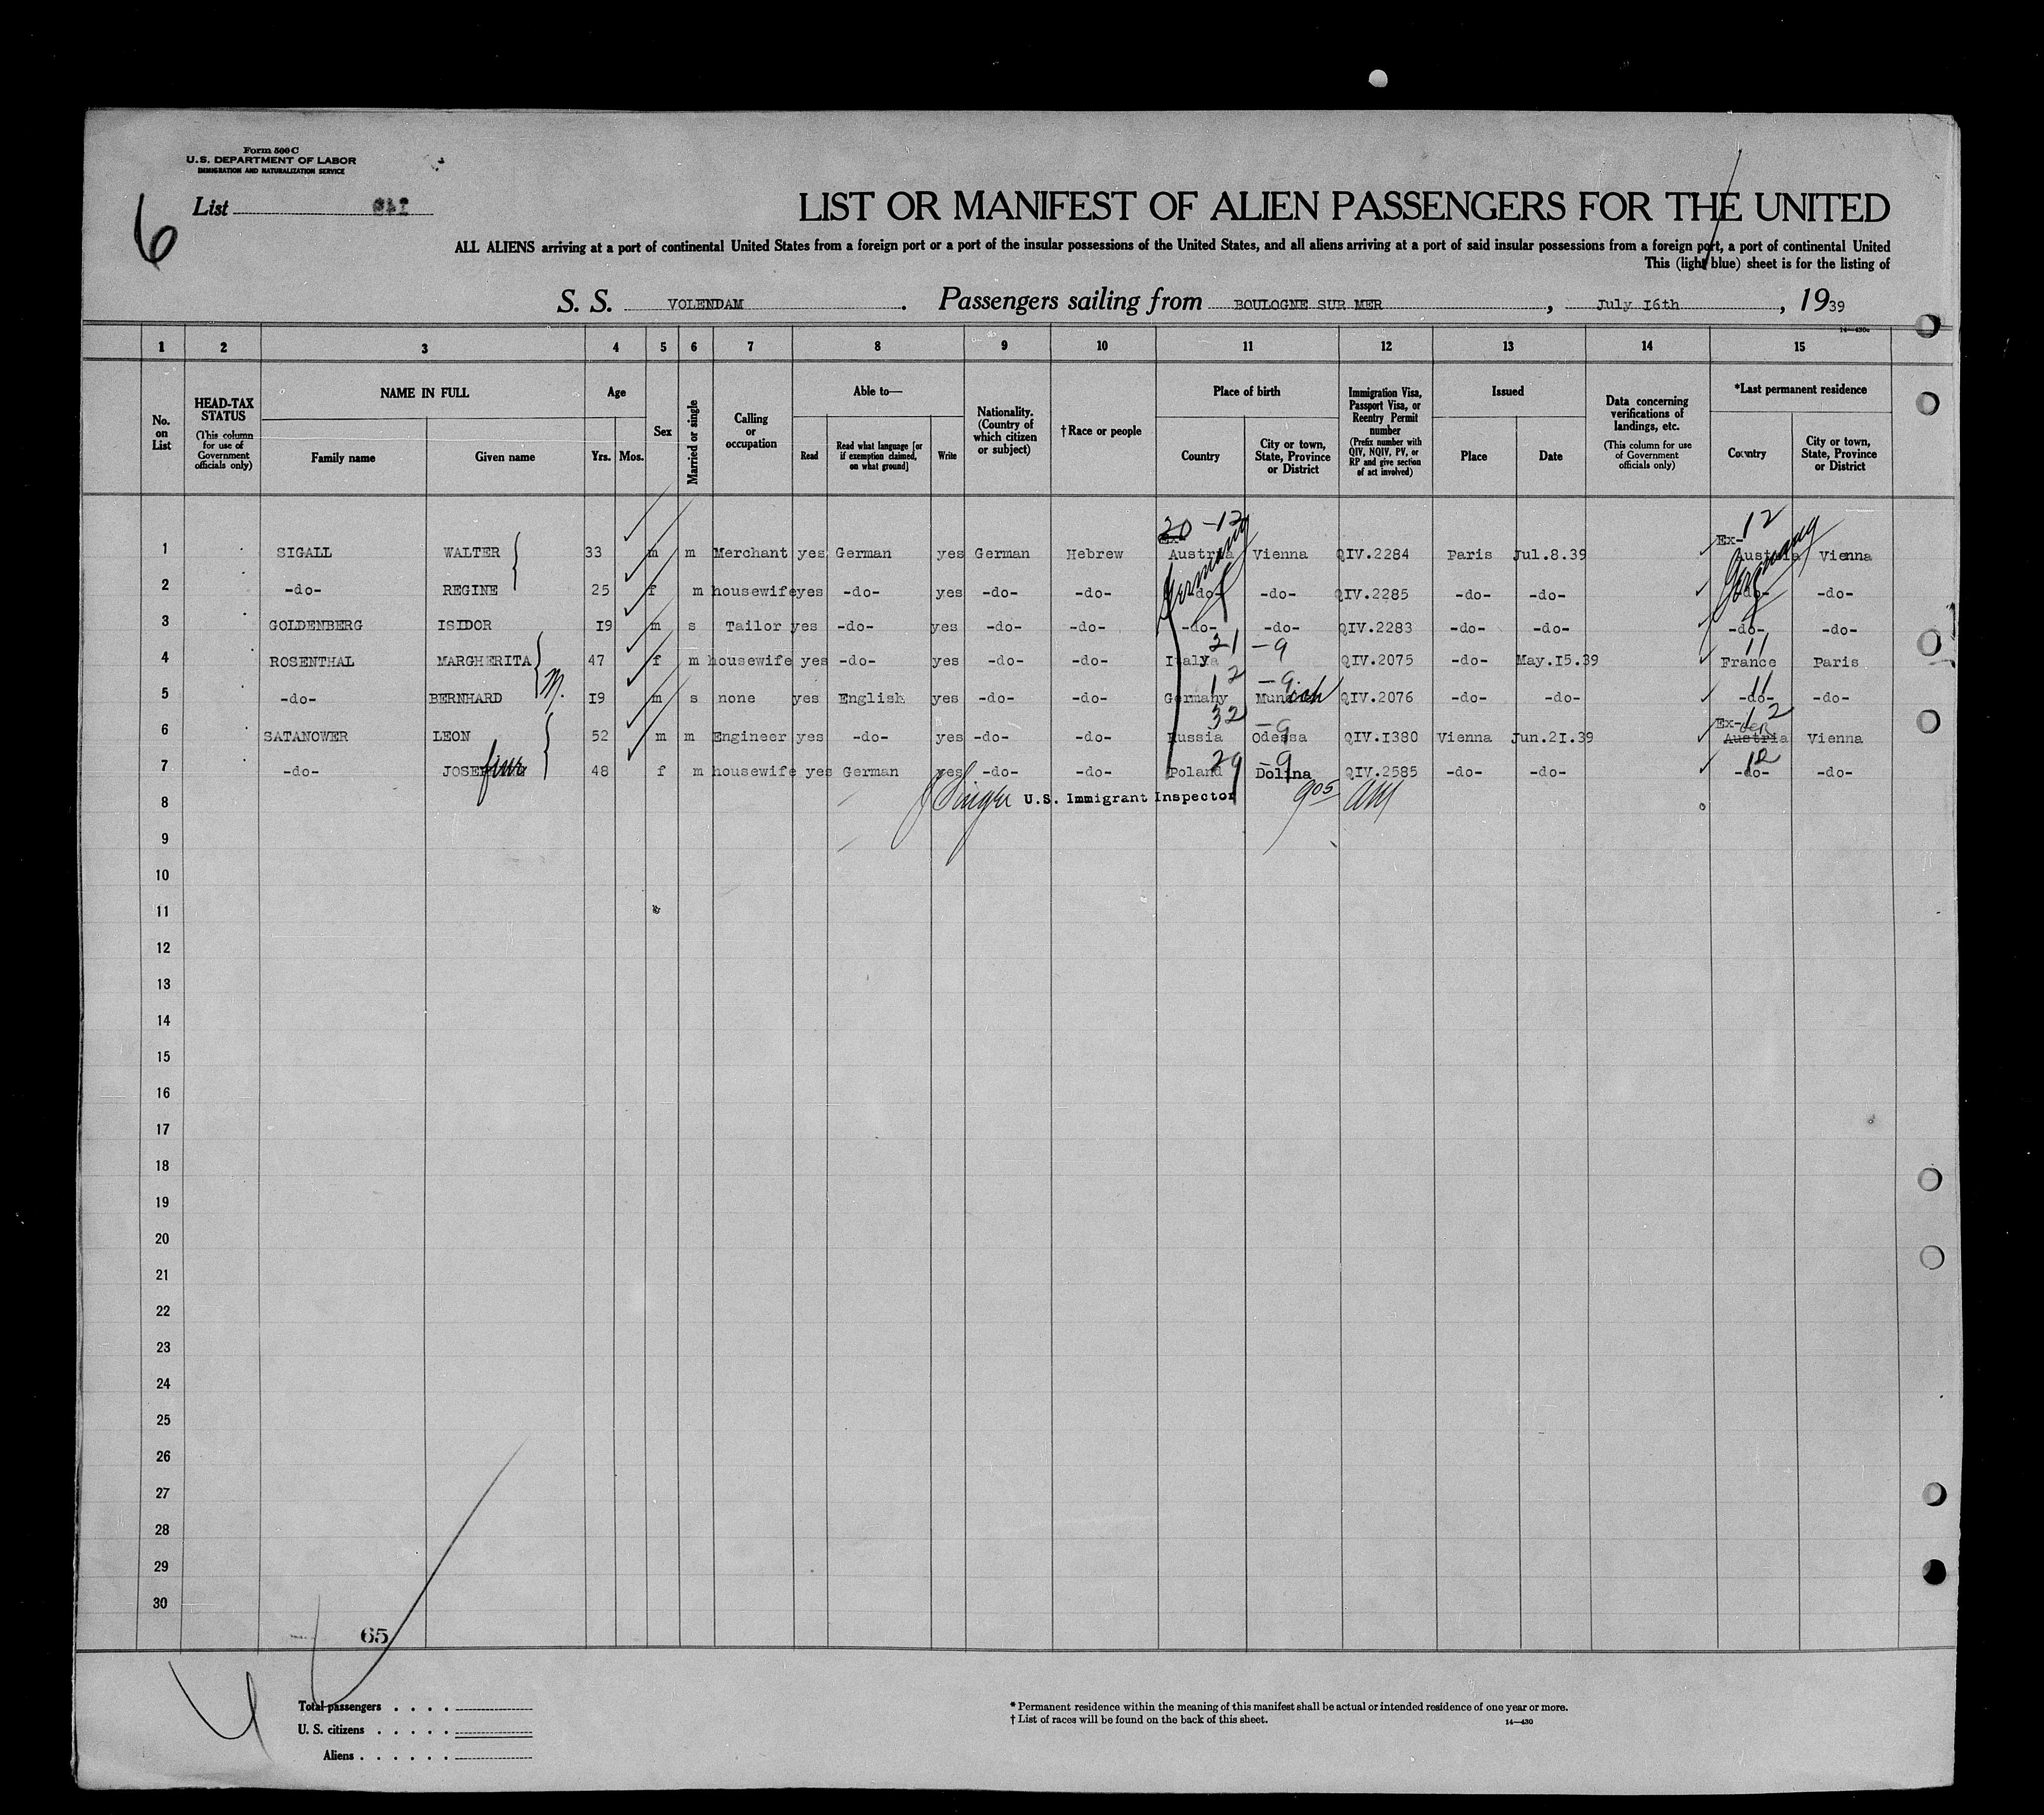 Form 500 C
U.S. DEPARTMENT OF LABOR
IMMIGRATION AND NATURALIZATION SERVICE
6
List
LIST OR MANIFEST OF ALIEN PASSENGERS FOR THE UNITED
ALL ALIENS arriving at a port of continental United States from a foreign port or a port of the insular possessions of the United States, and all aliens arriving at a port of said insular possessions from a foreign port, a port of continental United
This (light blue) sheet is for the listing of
S. S. VOLENDAM. Passengers sailing from BOULOGNE SUR MER, July 16th, 1939
14—430a
1 2 3 4 5 6 7 8 9 10 11 12 13 14 15
No. on List
HEAD-TAX STATUS (This column for use of Government officials only)
NAME IN FULL
Family name Given name
Age
Yrs. Mos.
Sex
Married or single
Calling or occupation
Able to—
Read
Read what language [or if exemption claimed, on what ground]
Write
Nationality. (Country of which citizen or subject)
†Race or people
Place of birth
Country
City or town, State, Province or District
Immigration Visa, Passport Visa, or Reentry Permit number (Prefix number with QIV, NQIV, PV, or RP and give section of act involved)
Issued
Place Date
Data concerning verifications of landings, etc. (This column for use of Government officials only)
*Last permanent residence
Country
City or town, State, Province or District
20 -12 12
Ex- Ex-
1 SIGALL WALTER 33 m m Merchant yes German yes German Hebrew Austria Vienna QIV.2284 Paris Jul.8.39 Austria Vienna
Germany Germany
2 -do- REGINE 25 f m housewife yes -do- yes -do- -do- -do- -do- QIV.2285 -do- -do- -do- -do-
3 GOLDENBERG ISIDOR 19 m s Tailor yes -do- yes -do- -do- -do- -do- QIV.2283 -do- -do- -do- -do-
21 -9 11
4 ROSENTHAL MARGHERITA 47 f m housewife yes -do- yes -do- -do- Italy QIV.2075 -do- May.15.39 France Paris
12 -9 11
5 -do- BERNHARD M. 19 m s none yes English yes -do- -do- Germany Munich QIV.2076 -do- -do- -do- -do-
32 -9 Ex- 12
6 SATANOWER LEON 52 m m Engineer yes -do- yes -do- -do- Russia Odessa QIV.1380 Vienna Jun.21.39 Austria Vienna
29 -9 12
7 -do- JOSEfine 48 f m housewife yes German yes -do- -do- Poland Dolina QIV.2585 -do- -do- -do- -do-
8 U.S. Immigrant Inspector 905
9
10
11
12
13
14
15
16
17
18
19
20
21
22
23
24
25
26
27
28
29
30
65
Total passengers . . . .
U. S. citizens . . . . .
Aliens . . . . . .
* Permanent residence within the meaning of this manifest shall be actual or intended residence of one year or more.
† List of races will be found on the back of this sheet. 14—430